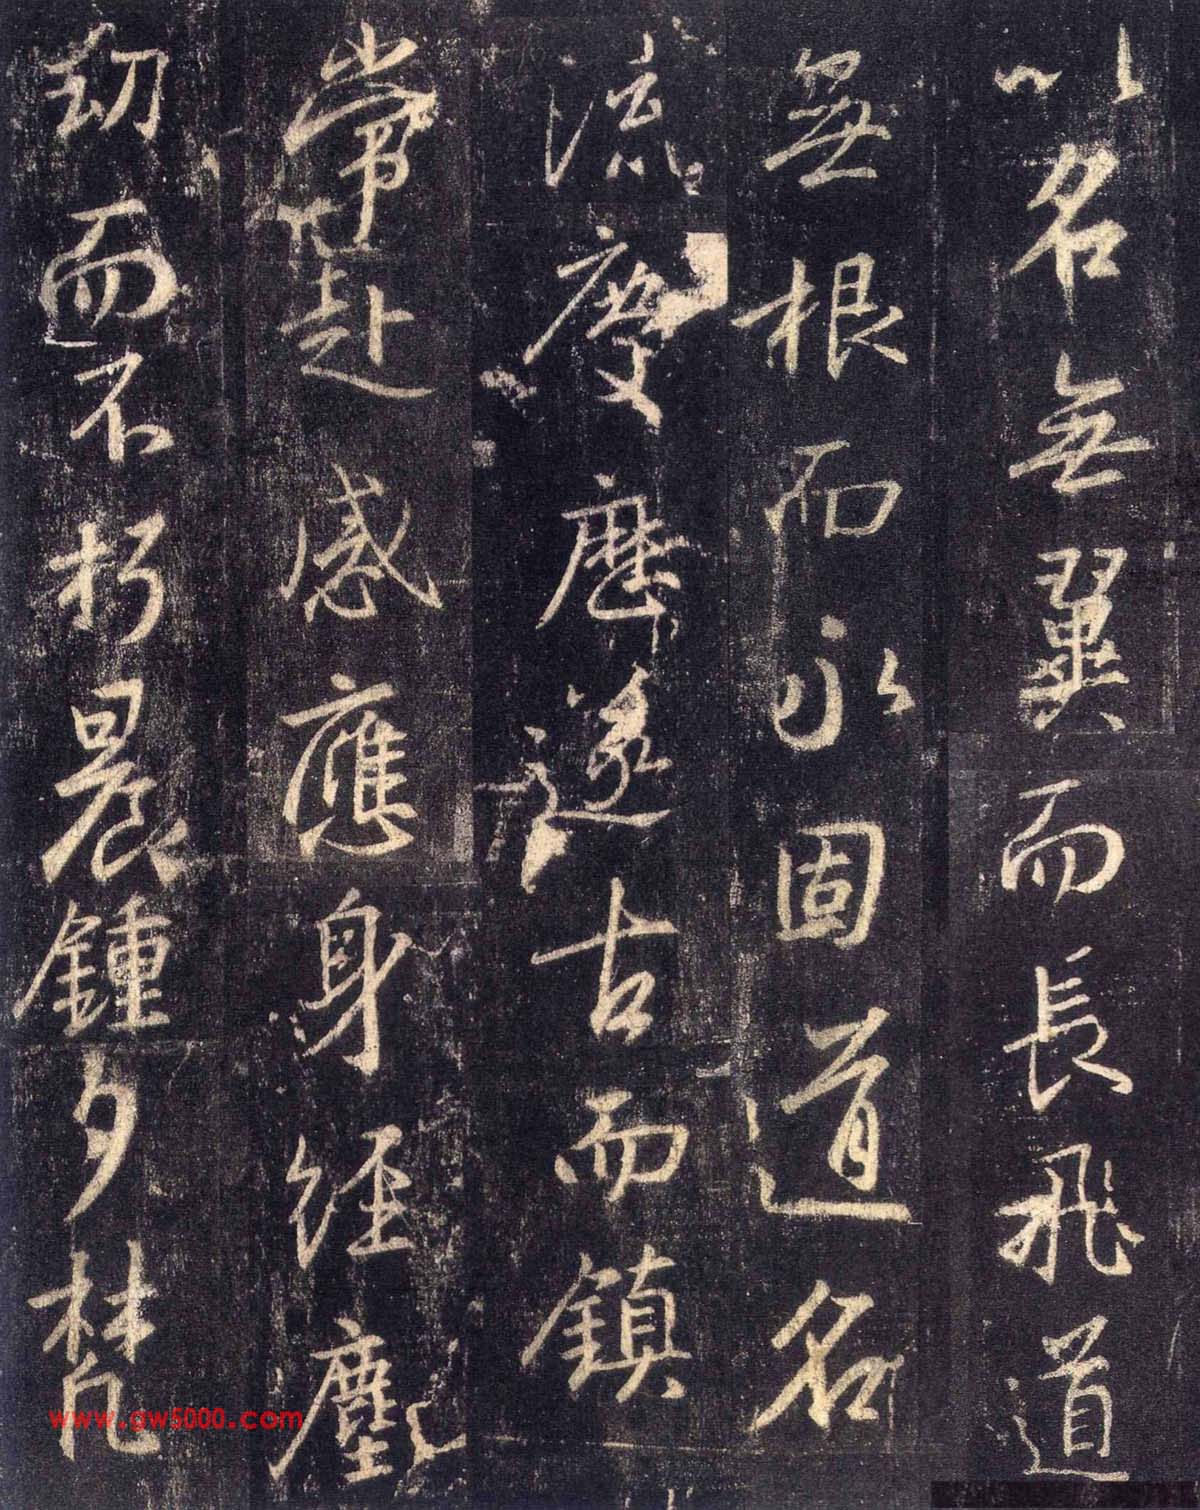 以名無翼而長飛道
無根而永固道名
流慶歷遂古而鎮
常赴感應身經塵
劫而不朽晨鍾夕梵
www.gw5000.com